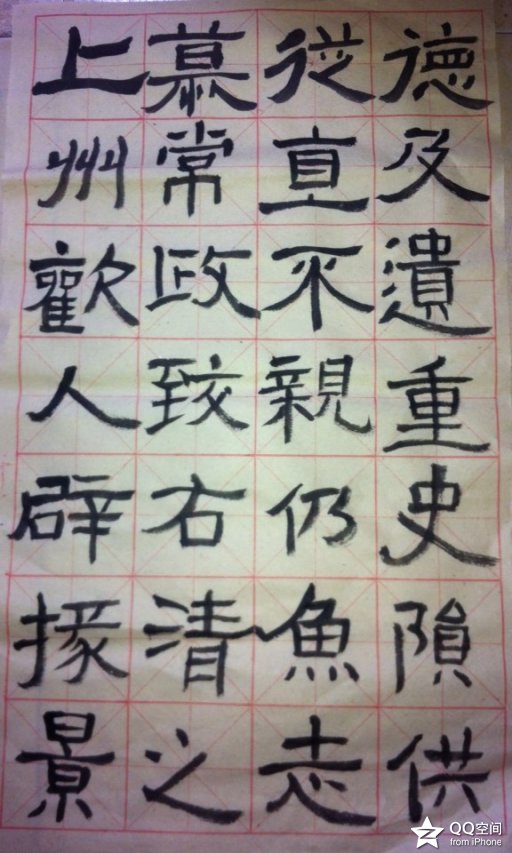 德及遺重史隕供
從直不親仍魚志
慕常政致右清之
上州歡人辟掾景
QQ空间
from iPhone